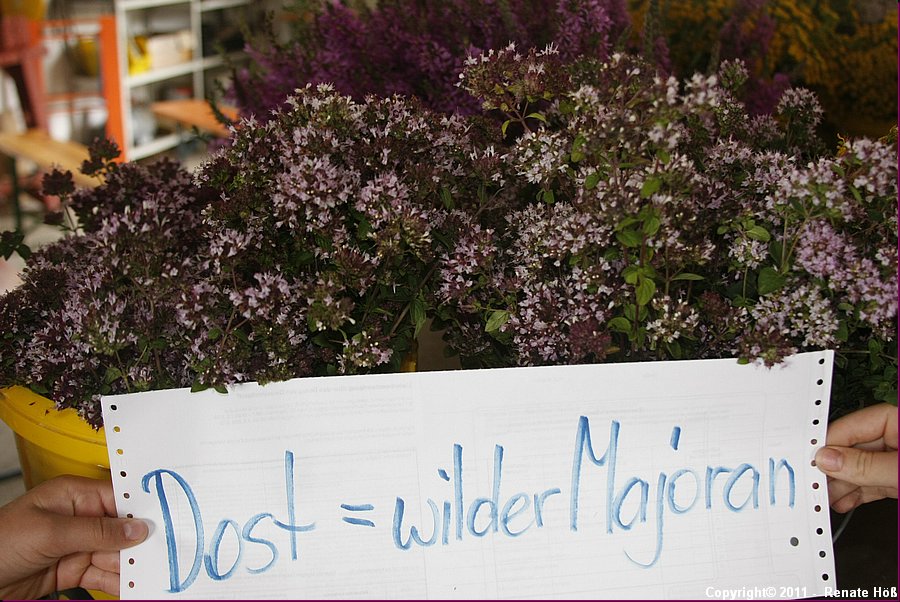 Dost = wilder Majoran
Copyright© 2011 - Renate Höß